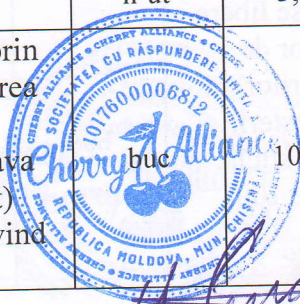 orin
rea
ava
t)
vind
buc
10
CHERRY ALLIANCE • CHERRY ALLIANCE • CHERRY
SOCIETATEA CU RĂSPUNDERE LIMITATĂ
1017600006812
Cherry Alliance
REPUBLICA MOLDOVA, MUN. CHIȘINĂU